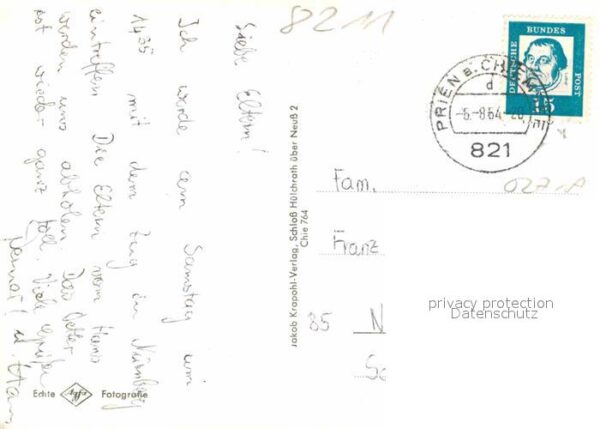 8211
Liebe Eltern!
Ich werde am Samstag um
14.35 mit dem Zug in Nürnberg
eintreffen. Die Eltern vom Hans
werden uns abholen. Das Wetter
ist wieder ganz toll. Viele Grüße
Echte Agfa Fotografie
Jakob Krapohl-Verlag, Schloß Hülchrath über Neuß 2
Chie 764
DEUTSCHE BUNDESPOST
15
PRIEN a. CHIEMSEE
d
-5.-8.64.-20
821
Fam.
Franz
85 N
privacy protection
Datenschutz